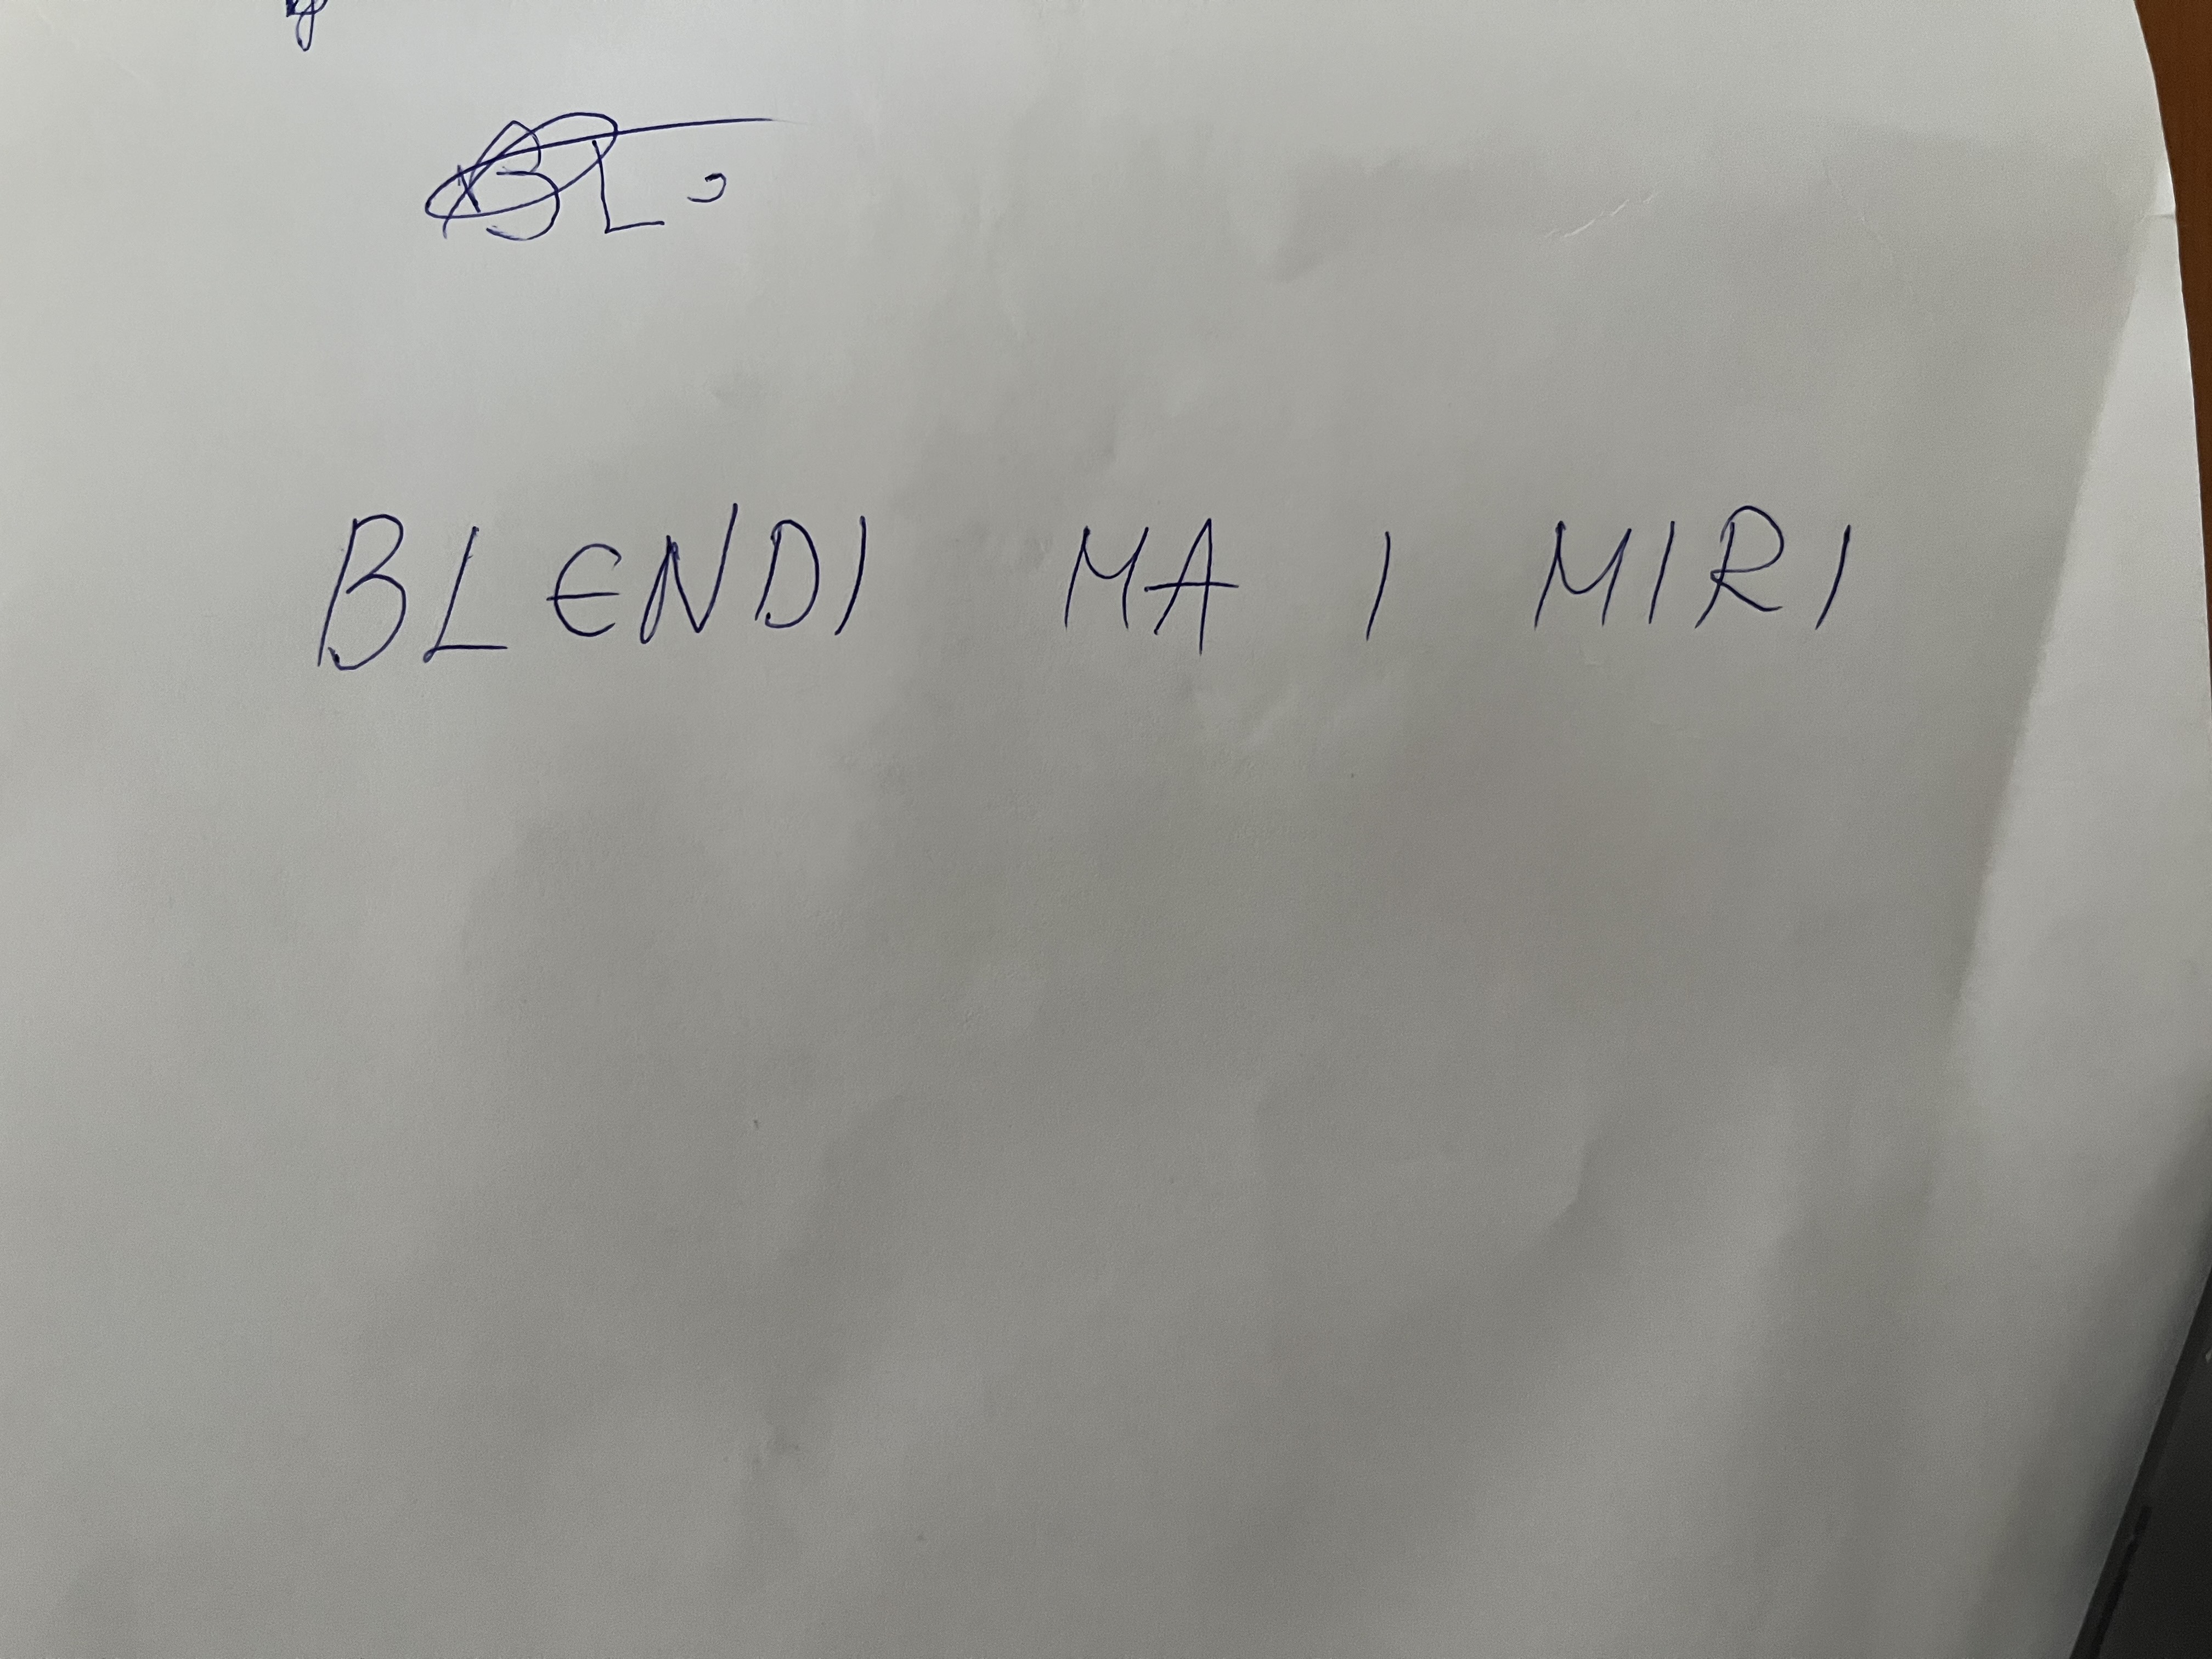 BLENDI MA I MIRI